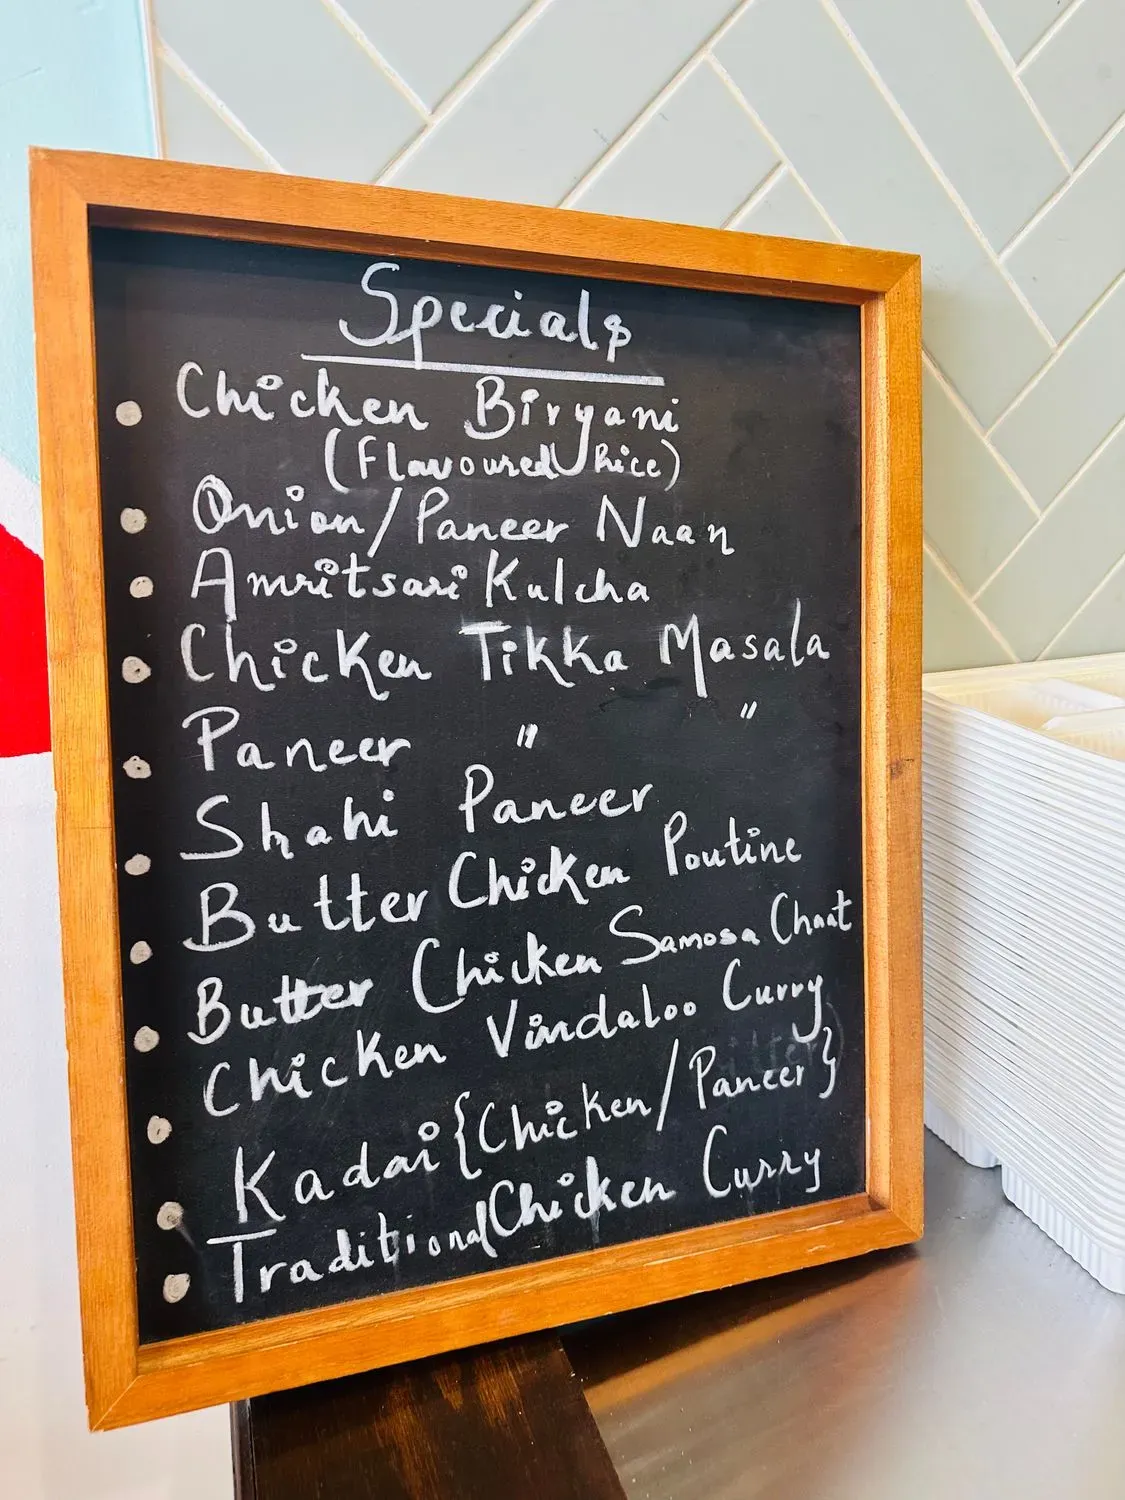 Specials
Chicken Biryani
(Flavoured Rice)
Onion/Paneer Naan
Amritsari Kulcha
Chicken Tikka Masala
Paneer " "
Shahi Paneer
Butter Chicken Poutine
Butter Chicken Samosa Chaat
Chicken Vindaloo Curry
Kadai {Chicken/Paneer}
Traditional Chicken Curry